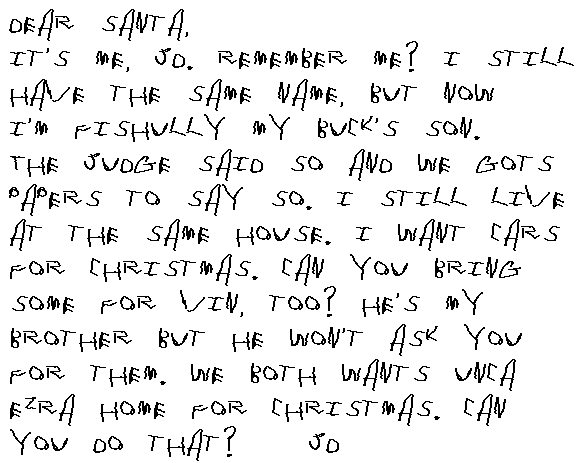 DEAR SANTA,
IT'S ME, JD. REMEMBER ME? I STILL
HAVE THE SAME NAME, BUT NOW
I'M FISHULLY MY BUCK'S SON.
THE JUDGE SAID SO AND WE GOTS
PAPERS TO SAY SO. I STILL LIVE
AT THE SAME HOUSE. I WANT CARS
FOR CHRISTMAS. CAN YOU BRING
SOME FOR VIN, TOO? HE'S MY
BROTHER BUT HE WON'T ASK YOU
FOR THEM. WE BOTH WANTS UNCA
EZRA HOME FOR CHRISTMAS. CAN
YOU DO THAT? JD